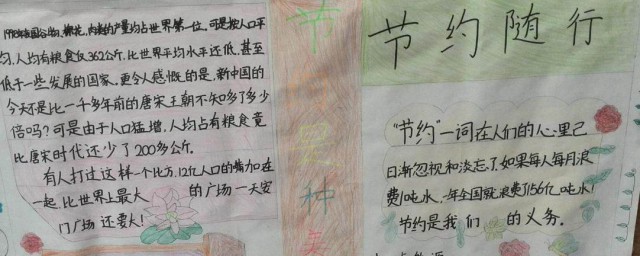 我国谷物、棉花、肉类的产量均占世界第一位。可是按人口平
匀,人均有粮食仅362公斤,比世界平均水平还低,甚至
低于一些发展的国家。更令人感慨的是,新中国的
今天不是比一千多年前的唐宋王朝不知多了多少
倍吗?可是由于人口猛增,人均占有粮食竟
比唐宋时代还少了200多公斤。
有人打过这样一个比方,12亿人口的嘴加在
一起,比世界上最大 的广场一天安
门广场 还要大!
节约是种美
节约随行
"节约"一词在人们的心里已
日渐忽视和淡忘了。如果每人每月浪
费1吨水,一年全国就浪费156亿吨水!
节约是我们 的义务。